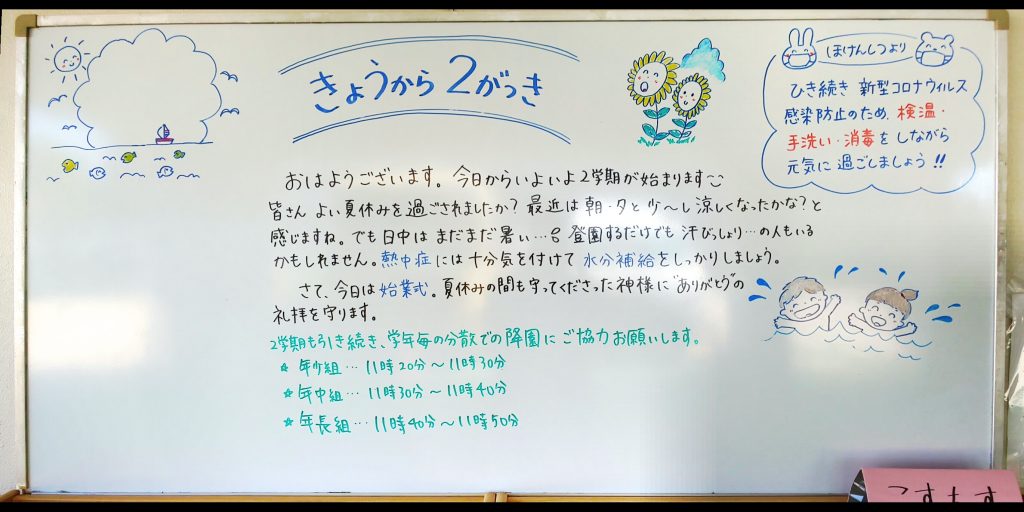 きょうから2がっき
ほけんしつより
ひき続き 新型コロナウィルス
感染防止のため、検温・
手洗い・消毒をしながら
元気に過ごしましょう!!
おはようございます。今日からいよいよ2学期が始まります
皆さん よい夏休みを過ごされましたか?最近は朝・夕と少〜し涼しくなったかな?と
感じますね。でも日中はまだまだ暑い… 登園するだけでも汗びっしょり…の人もいる
かもしれません。熱中症には十分気を付けて水分補給をしっかりしましょう。
さて、今日は始業式。夏休みの間も守ってくださった神様に"ありがとう"の
礼拝を守ります。
2学期も引き続き、学年毎の分散での降園にご協力お願いします。
☆年少組…11時20分〜11時30分
☆年中組…11時30分〜11時40分
☆年長組…11時40分〜11時50分